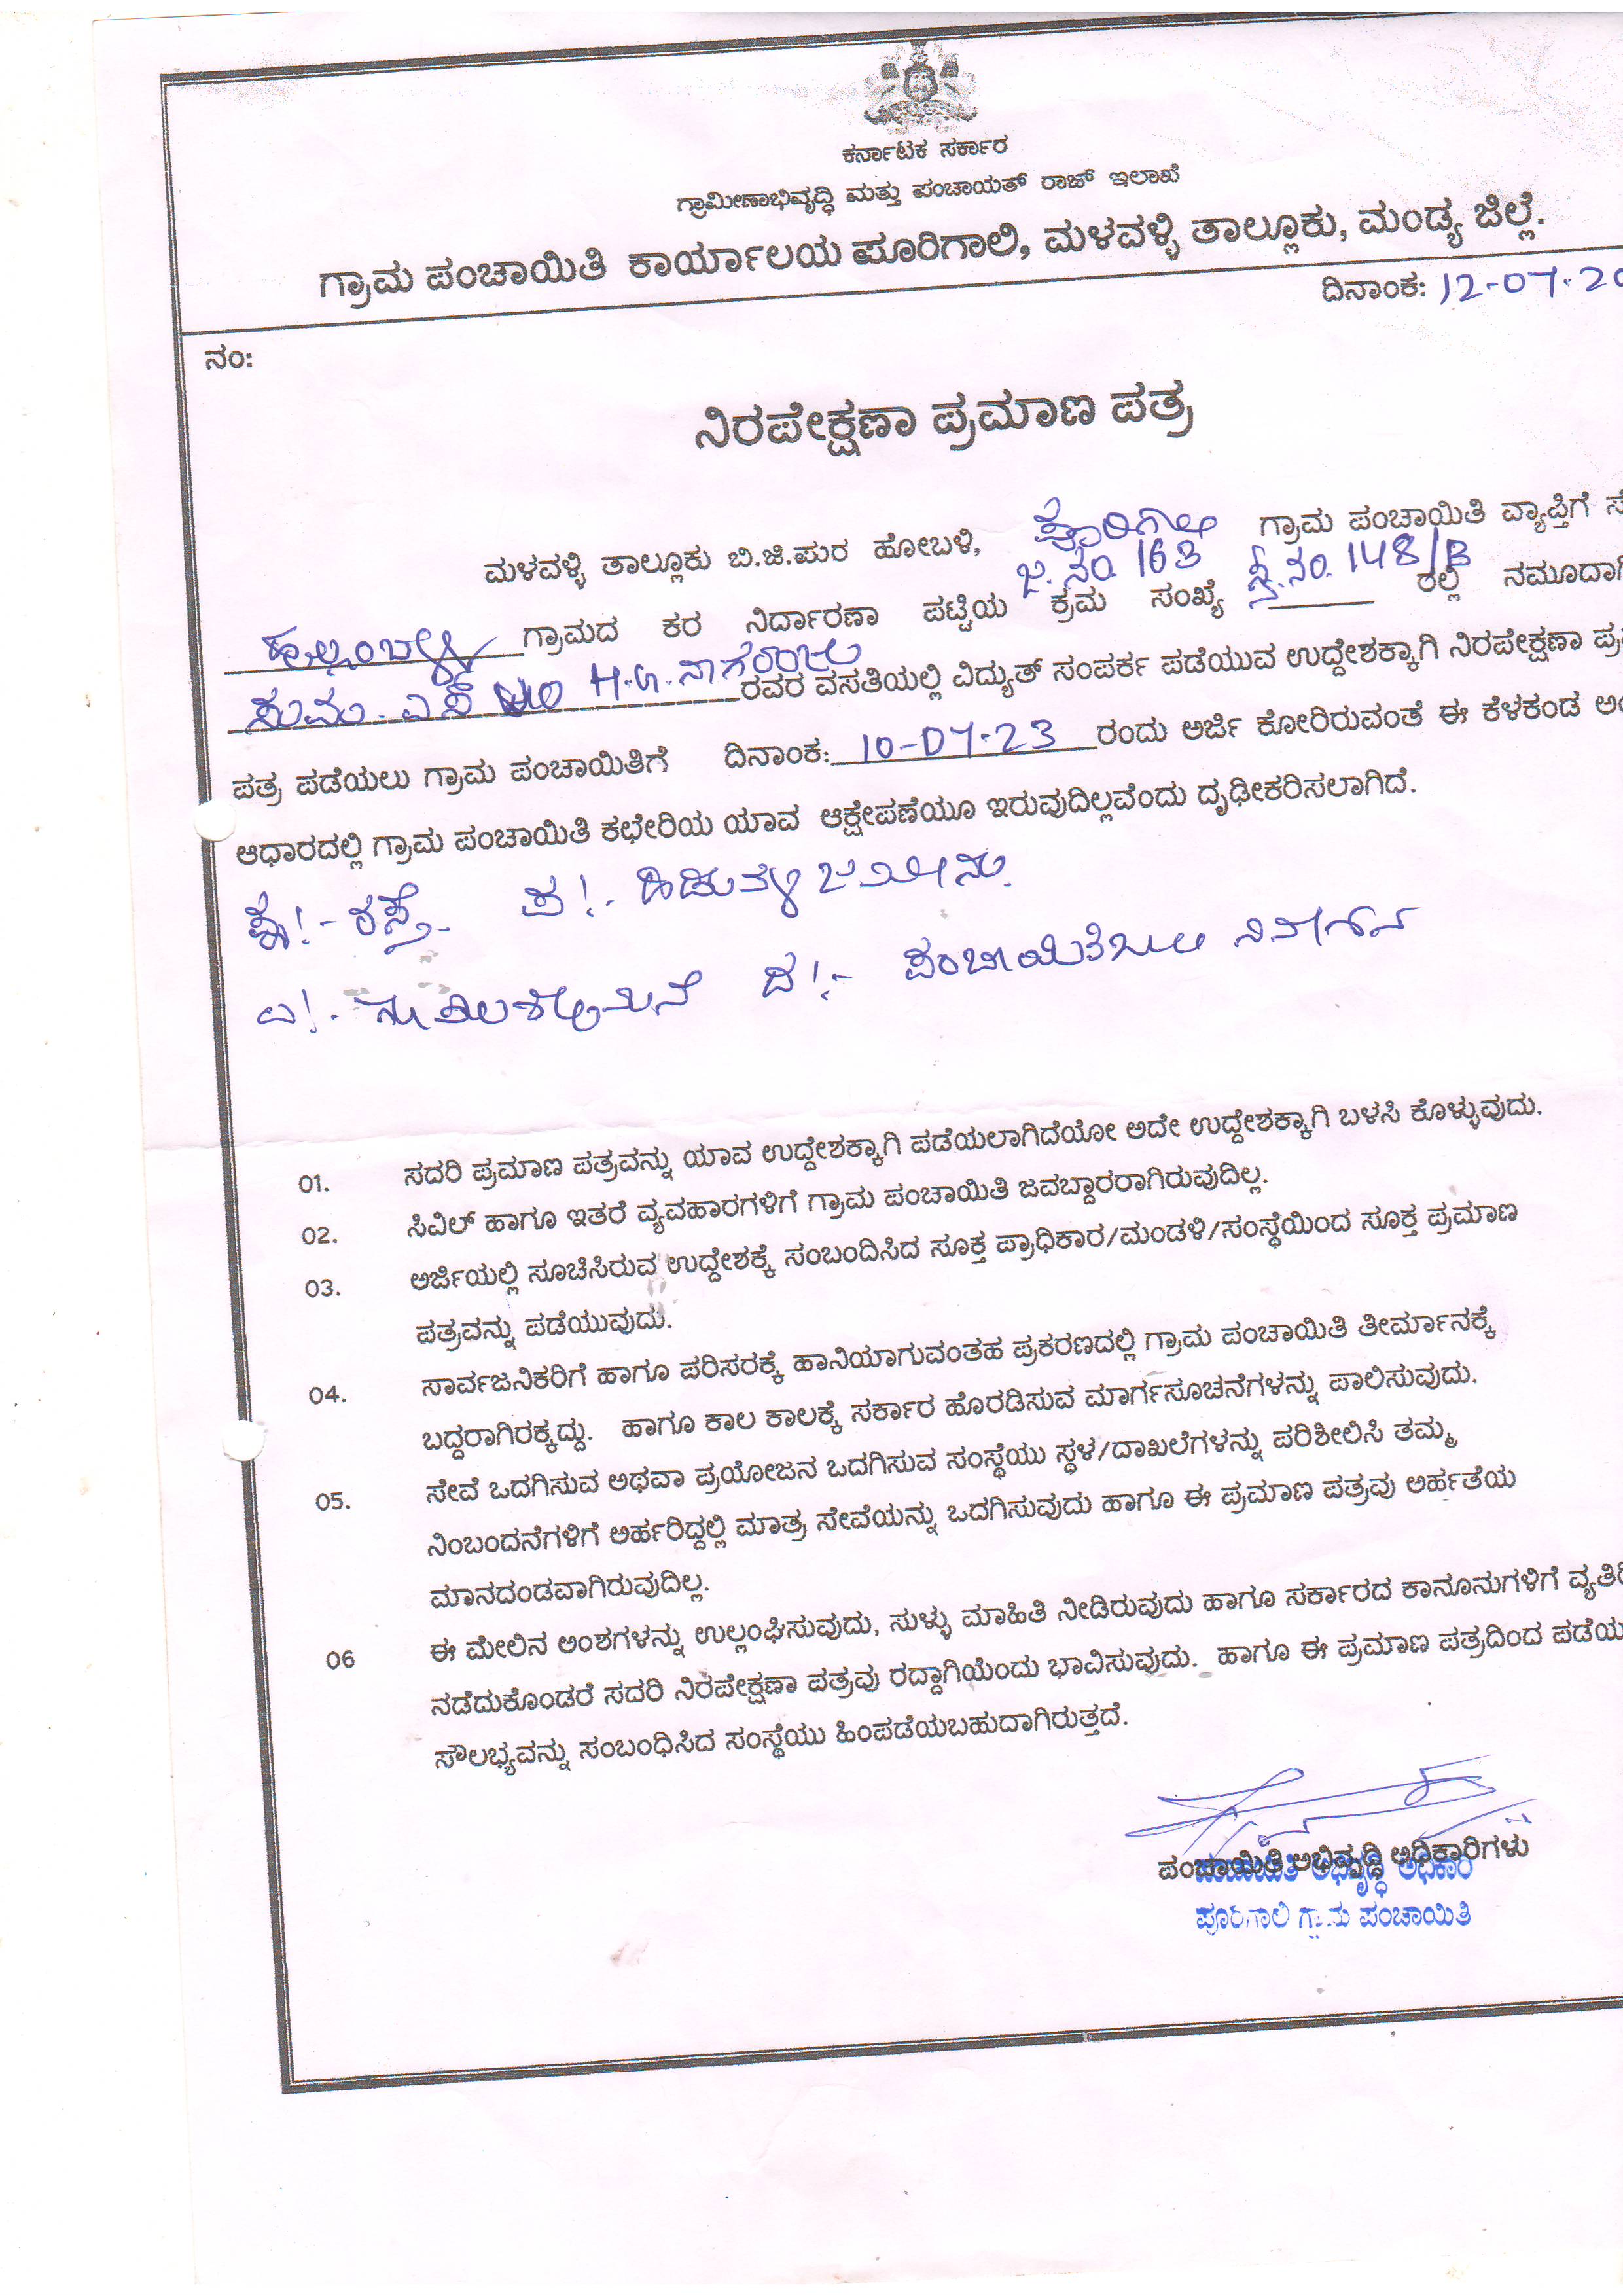 ಕರ್ನಾಟಕ ಸರ್ಕಾರ
ಗ್ರಾಮೀಣಾಭಿವೃದ್ಧಿ ಮತ್ತು ಪಂಚಾಯತ್ ರಾಜ್ ಇಲಾಖೆ
ಗ್ರಾಮ ಪಂಚಾಯಿತಿ ಕಾರ್ಯಾಲಯ ಪೂರಿಗಾಲಿ, ಮಳವಳ್ಳಿ ತಾಲ್ಲೂಕು, ಮಂಡ್ಯ ಜಿಲ್ಲೆ.
ದಿನಾಂಕ: 12-07-20
ನಂ:
ನಿರಪೇಕ್ಷಣಾ ಪ್ರಮಾಣ ಪತ್ರ
ಮಳವಳ್ಳಿ ತಾಲ್ಲೂಕು ಬಿ.ಜಿ.ಪುರ ಹೋಬಳಿ, ಪೂರಿಗಾಲಿ ಗ್ರಾಮ ಪಂಚಾಯಿತಿ ವ್ಯಾಪ್ತಿಗೆ ಸೇ
ಜ.ನಂ. 163 ಸ್ವ.ನಂ. 148/B
ಗ್ರಾಮದ ಕರ ನಿರ್ದಾರಣಾ ಪಟ್ಟಿಯ ಕ್ರಮ ಸಂಖ್ಯೆ ರಲ್ಲಿ ನಮೂದಾಗಿ
ಸುಮ.ಎಸ್ H.G.ನಾಗರಾಜು ರವರ ವಸತಿಯಲ್ಲಿ ವಿದ್ಯುತ್ ಸಂಪರ್ಕ ಪಡೆಯುವ ಉದ್ದೇಶಕ್ಕಾಗಿ ನಿರಪೇಕ್ಷಣಾ ಪ್ರ
ಪತ್ರ ಪಡೆಯಲು ಗ್ರಾಮ ಪಂಚಾಯಿತಿಗೆ ದಿನಾಂಕ: 10-07-23 ರಂದು ಅರ್ಜಿ ಕೋರಿರುವಂತೆ ಈ ಕೆಳಕಂಡ ಅಂ
ಆಧಾರದಲ್ಲಿ ಗ್ರಾಮ ಪಂಚಾಯಿತಿ ಕಛೇರಿಯ ಯಾವ ಆಕ್ಷೇಪಣೆಯೂ ಇರುವುದಿಲ್ಲವೆಂದು ದೃಢೀಕರಿಸಲಾಗಿದೆ.
ಪೂ!- ರಸ್ತೆ. ಪ!- ಹಿಡುವಳಿ ಜಮೀನು.
ಉ!- ಮನೆ ದ!- ಪಂಚಾಯಿತಿ
01. ಸದರಿ ಪ್ರಮಾಣ ಪತ್ರವನ್ನು ಯಾವ ಉದ್ದೇಶಕ್ಕಾಗಿ ಪಡೆಯಲಾಗಿದೆಯೋ ಅದೇ ಉದ್ದೇಶಕ್ಕಾಗಿ ಬಳಸಿ ಕೊಳ್ಳುವುದು.
02. ಸಿವಿಲ್ ಹಾಗೂ ಇತರೆ ವ್ಯವಹಾರಗಳಿಗೆ ಗ್ರಾಮ ಪಂಚಾಯಿತಿ ಜವಬ್ದಾರರಾಗಿರುವುದಿಲ್ಲ.
03. ಅರ್ಜಿಯಲ್ಲಿ ಸೂಚಿಸಿರುವ ಉದ್ದೇಶಕ್ಕೆ ಸಂಬಂದಿಸಿದ ಸೂಕ್ತ ಪ್ರಾಧಿಕಾರ/ಮಂಡಳಿ/ಸಂಸ್ಥೆಯಿಂದ ಸೂಕ್ತ ಪ್ರಮಾಣ
ಪತ್ರವನ್ನು ಪಡೆಯುವುದು.
04. ಸಾರ್ವಜನಿಕರಿಗೆ ಹಾಗೂ ಪರಿಸರಕ್ಕೆ ಹಾನಿಯಾಗುವಂತಹ ಪ್ರಕರಣದಲ್ಲಿ ಗ್ರಾಮ ಪಂಚಾಯಿತಿ ತೀರ್ಮಾನಕ್ಕೆ
ಬದ್ದರಾಗಿರಕ್ಕದ್ದು. ಹಾಗೂ ಕಾಲ ಕಾಲಕ್ಕೆ ಸರ್ಕಾರ ಹೊರಡಿಸುವ ಮಾರ್ಗಸೂಚನೆಗಳನ್ನು ಪಾಲಿಸುವುದು.
05. ಸೇವೆ ಒದಗಿಸುವ ಅಥವಾ ಪ್ರಯೋಜನ ಒದಗಿಸುವ ಸಂಸ್ಥೆಯು ಸ್ಥಳ/ದಾಖಲೆಗಳನ್ನು ಪರಿಶೀಲಿಸಿ ತಮ್ಮ
ನಿಂಬಂದನೆಗಳಿಗೆ ಅರ್ಹರಿದ್ದಲ್ಲಿ ಮಾತ್ರ ಸೇವೆಯನ್ನು ಒದಗಿಸುವುದು ಹಾಗೂ ಈ ಪ್ರಮಾಣ ಪತ್ರವು ಅರ್ಹತೆಯ
ಮಾನದಂಡವಾಗಿರುವುದಿಲ್ಲ.
06 ಈ ಮೇಲಿನ ಅಂಶಗಳನ್ನು ಉಲ್ಲಂಘಿಸುವುದು, ಸುಳ್ಳು ಮಾಹಿತಿ ನೀಡಿರುವುದು ಹಾಗೂ ಸರ್ಕಾರದ ಕಾನೂನುಗಳಿಗೆ ವ್ಯತಿರಿ
ನಡೆದುಕೊಂಡರೆ ಸದರಿ ನಿರಪೇಕ್ಷಣಾ ಪತ್ರವು ರದ್ದಾಗಿಯೆಂದು ಭಾವಿಸುವುದು. ಹಾಗೂ ಈ ಪ್ರಮಾಣ ಪತ್ರದಿಂದ ಪಡೆಯ
ಸೌಲಭ್ಯವನ್ನು ಸಂಬಂಧಿಸಿದ ಸಂಸ್ಥೆಯು ಹಿಂಪಡೆಯಬಹುದಾಗಿರುತ್ತದೆ.
ಪಂಚಾಯಿತಿ ಅಭಿವೃದ್ಧಿ ಅಧಿಕಾರಿಗಳು
ಪಂಚಾಯಿತಿ ಅಭಿವೃದ್ಧಿ ಅಧಿಕಾರಿ
ಪೂರಿಗಾಲಿ ಗ್ರಾಮ ಪಂಚಾಯಿತಿ